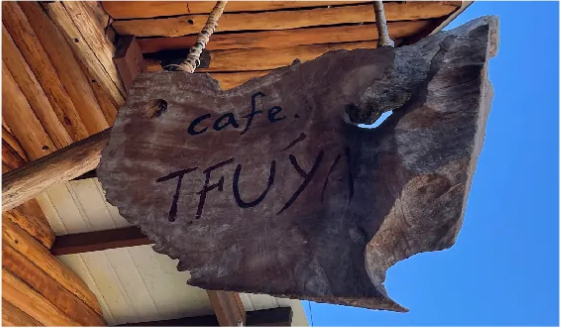 cafe.
TFU'YA